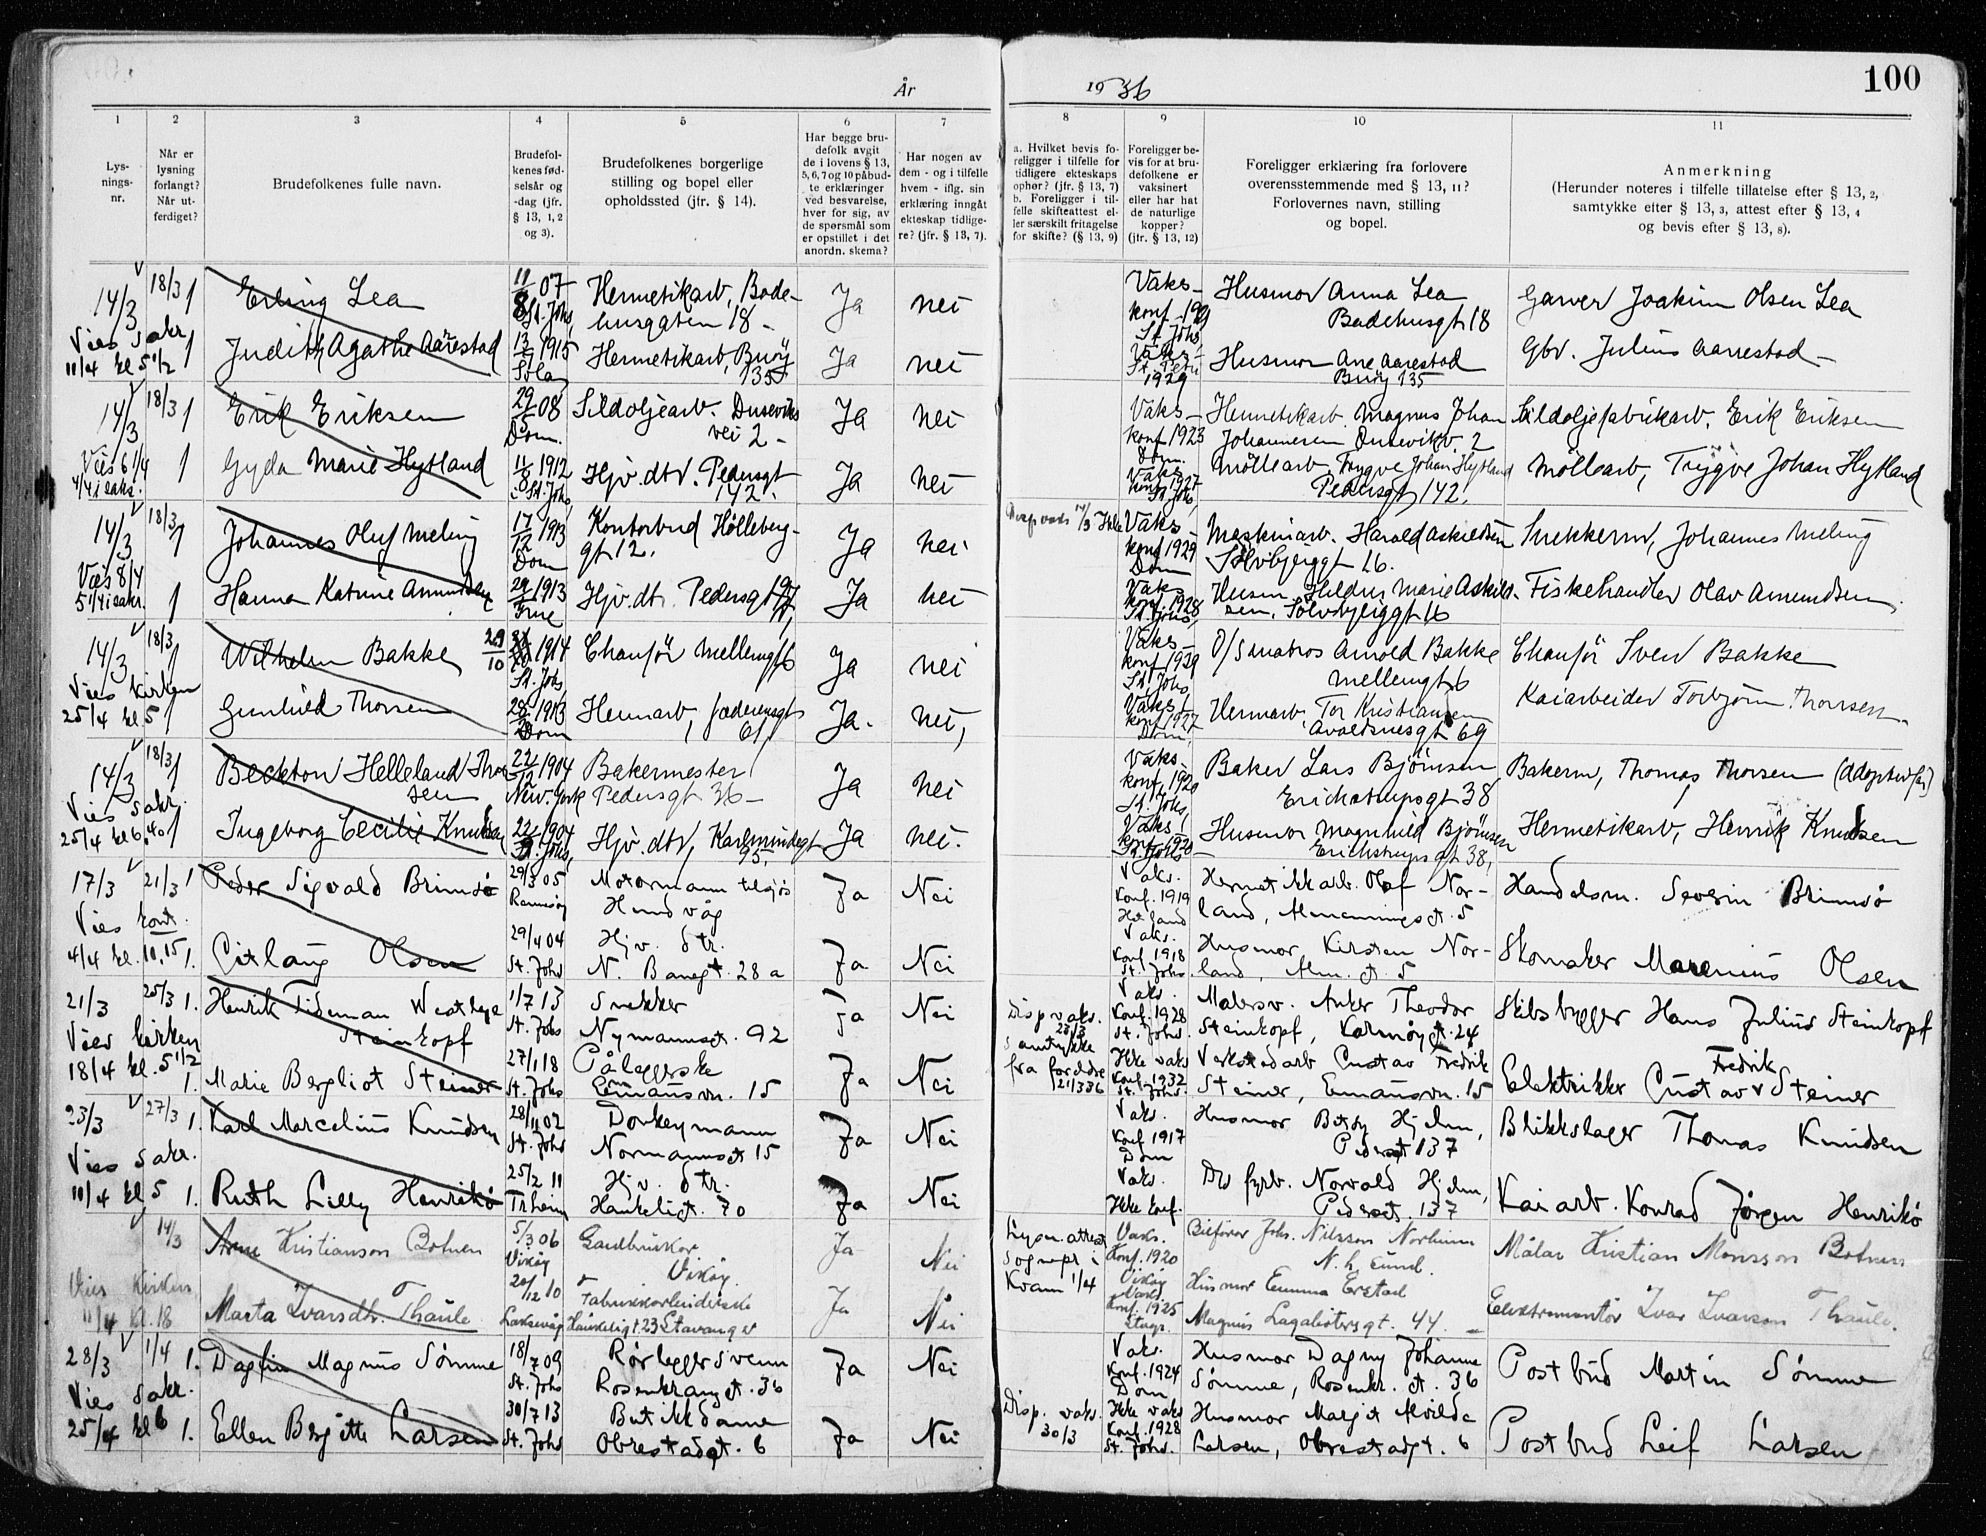 År 1936
100
1
2
3
4
5
6
7
8
9
10
11
Lys-
nings-
nr.
Når er
lysning
forlangt?
Når ut-
ferdiget?
Brudefolkenes fulle navn.
Brudefol-
kenes fød-
selsår og
-dag (jfr.
§ 13, 1, 2
og 3).
Brudefolkenes borgerlige
stilling og bopel eller
opholdssted (jfr. § 14).
Har begge bru-
defolk avgit
de i lovens § 13,
5, 6, 7 og 10 påbud-
te erklæringer
ved besvarelse,
hver for sig, av
de spørsmål som
er opstillet i det
anordn. skema?
Har nogen av
dem - og i tilfelle
hvem - iflg. sin
erklæring inngått
ekteskap tidlige-
re? (jfr. § 13, 7).
a. Hvilket bevis fo-
religger i tilfelle for
tidligere ekteskaps
ophør? (jfr. § 13, 7)
b. Foreligger i til-
felle skifteattest el-
ler særskilt fritagelse
for skifte? (§ 13, 9)
Foreligger be-
vis for at bru-
defolkene er
vaksinert
eller har hat
de naturlige
kopper?
(jfr. § 13, 12)
Foreligger erklæring fra forlovere
overensstemmende med § 13, 11?
Forlovernes navn, stilling
og bopel.
Anmerkning
(Herunder noteres i tilfelle tillatelse efter § 13, 2,
samtykke efter § 13, 3, attest efter § 13, 4
og bevis efter § 13, 8).
14/3 18/3 1 Erling Lea 11/8 07 St. Johs, Hermetikarb, Bade-
husgaten 18 - Ja nei Vaks- konf 19 St Johs Husmor Anna Lea
Badehusgt 18 Garver Joakim Olsen Lea
Vies sakr 11/4 kl 5 1/2 1 Judith Agathe Aarestad 13/ 1915 Sola Hermetikarb, Buøy
135 Ja nei Vaks, St. Petri 1929 Husmor Ane Aarestad
Buøy 135 Gbr. Julius Aarestad -
14/3 18/3 1 Erik Eriksen 29/ 08 Dom. Sildoljearb. Duseviks
vei 2 - Ja nei Vaks- konf 1923 Dom. Hermetikarb. Magnus Johan
Johannesen Dusevikv. 2 Sildoljefabrikarb. Erik Eriksen
Vies 6 1/4 4/4 i sakr. 1 Gyda Marie Hytland 11/8 1912 St. Johs, Hjv. dtr. Pedersgt
142. Ja nei Vaks konf 1927 St Johs, Møllearb. Trygve Johan Hytland
Pedersgt 142. Møllearb, Trygve Johan Hytland
14/3 18/3 1 Johannes Oluf Meling 17/12 1913 Dom Kontorbud Hølleberg-
gt 12. Ja nei Vaks- konf 1929 Dom Maskinarb. Harald Askildsen
Sølvbjerggt 16. Snekkerm, Johannes Meling
Vies 8/4 5 1/4 i sakr. 1 Hanna Katrine Amundsen 1913 Hjv. dt. Pedersgt Ja nei Vaks konf. 1928 St. Johs, Husm. Marie Askild-
sen. Sølvbjerggt 16 Fiskehandler Olav Amundsen.
14/3 18/3 1 Wilhelm Bakke 29/10 1914 St. Johs, Chaufør Mellemgt 6 Ja nei Vaks- konf 1929 St, Johs, O/S matros Arnold Bakke
Mellemgt 6 Chaufør Sven Bakke
Vies Kirken 25/4 kl 5 1 Gunhild Thorsen 1913 Dom Hermarb, Jæderensgt
61, Ja. nei, Vaks, konf 1927 Dom, Hermarb, Tor Kristiansen
Avaldsnesgt 69 Kaiarbeider Torbjørn Thorsen
14/3 18/3 1 Beckton Helleland Thor-
sen 22/12 1904 New. York Bakermester
Pedersgt 36 - Ja nei Vaks- konf, 1920 St. Johs, Baker Lars Bjørnsen
Erichstrupsgt 38 Bakerm, Thomas Thorsen (adoptivfar)
Vies sakr. 25/4 kl 6.40 1 Ingeborg Cecilie Knudsen 22/ 1904 St. Johs, Hjv. dtr, Karlsmindegt
95, Ja nei. Vaks konf 1920 St Johs Husmor Magnhild Bjørnsen
Erichstrupsgt 38, Hermetikarb, Henrik Knudsen
17/3 21/3 1 Peder Sigvald Brimsø 29/3 05 Rennesøy Motormann tilsjøs
Hundvåg Ja Nei Vaks. Konf. 1919 Hetland Hermetikkarb. Olaf Nor-
land, Almenningsgt. 5 Handelsm. Severin Brimsø
Vies kont. 4/4 kl. 10,15 1. Gitlaug Olsen 29/4 04 St. Johs Hjv. dtr.
N. Banegt. 28a Ja Nei Vaks. Konf. 1918 St. Johs Husmor Kirsten Nor-
land, Alm. gt. 5 Skomaker Marenius Olsen
21/3 25/3 1. Henrik Tideman Westlye
Steinkopf 1/7 13 St. Johs Snekker
Nymannsgt. 92 Ja Nei Disp vaks. 23/3 Vaks. Konf. 1928 St. Johs. Malersv. Anker Theodor
Steinkopf, Karmøygt. 24 Skibsbygger Hans Julius Steinkopf
Vies kirken 18/4 kl. 5 1/2 1. Marie Bergliot Steiner 27/1 18 St. Johs Påleggerske
Emausvn. 15 Ja Nei Samtykke fra foreldre 21/3 36 Ikke vaks Konf. 1932 St. Johs. Verkstedarb Gustav Fredrik
Steiner, Emausvn. 15 Elektrikker Gustav Fredrik Steiner
23/3 27/3 1. Karl Marcelius Knudsen 28/11 02 St. Johs Donkeymann
Normannsgt 15 Ja Nei Vaks. Konf 1917 Dom Husmor Betsy Hjelm,
Pedersgt 137 Blikkslager Thomas Knudsen
Vies Sakr. 11/4 kl 5 1. Ruth Lilly Henriksø 25/2 11 Trheim Hjv. dtr.
Haukeligt. 70 Ja Nei Vaks. Ikke konf. fyrb. Norvald Hjelm,
Pedersgt. 137 Kaiarb. Konrad Jørgen Henriksø
14/3 Arne Kristianson Botnen 5/3 06 Vikøy Gardbrukar
Vikøy. Ja Nei Lysn. attest Sognepr i Kvam 1/4 Vaks. Konf. 1920 Vikøy Bilfører Johs. Nilsson Norheim
N. h. sund. Målar Kristian Monsson Botnen
Vies Kirken 11/4 kl. 18 Marta Ivarsdtr. Thaule 20/12 10 Laksevåg Fabrikkarbeiderske
Haukeligt. 23 Stavanger Ja Nei Vaks Konf. 1925 Stvgr. Husmor Emma Erstad
Magnus Lagabøtersgt. 44. Elektromontør Ivar Ivarson Thaule.
28/3 1/4 1. Dagfin Magnus Sømme 18/7 09 St. Johs Rørleggersvenn
Rosenkrantzgt. 36 Ja Nei Vaks. Konf. 1924 Dom Husmor Dagny Johanne
Sømme, Rosenkr. gt. 36 Postbud Martin Sømme
Vies Sakr. 25/4 kl 6 1. Ellen Bergitte Larsen 30/7 13 St. Johs Butikkdame
Obrestadgt. 6 Ja Nei Disp. vaks. 30/3 Ikke vaks Konf. 1928 St. Johs. Husmor Margit Alvilde
Larsen, Obrestadgt. 6 Postbud Leif Larsen